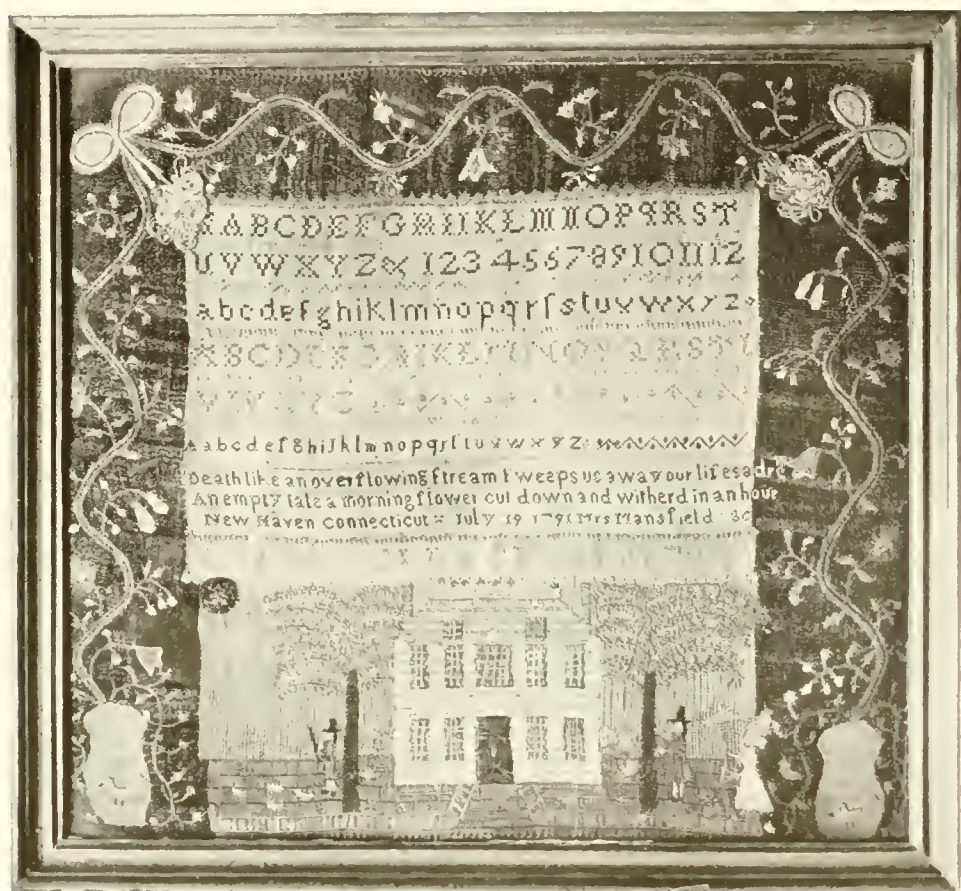 ABCDEFGHIKLMNOPQRST
UVWXYZ& 123456789101112
abcdefghiklmnopqrſstuvwxyz
KLMNOPQRST
abcdefghiJklmnopqrſtuvwxyz
Death like an overflowing ſtream ſweeps us away our lifes a
An empty tale a morning flower cut down and witherd in an hour
New Haven Connecticut July 19 1791 Mrs Mansfield